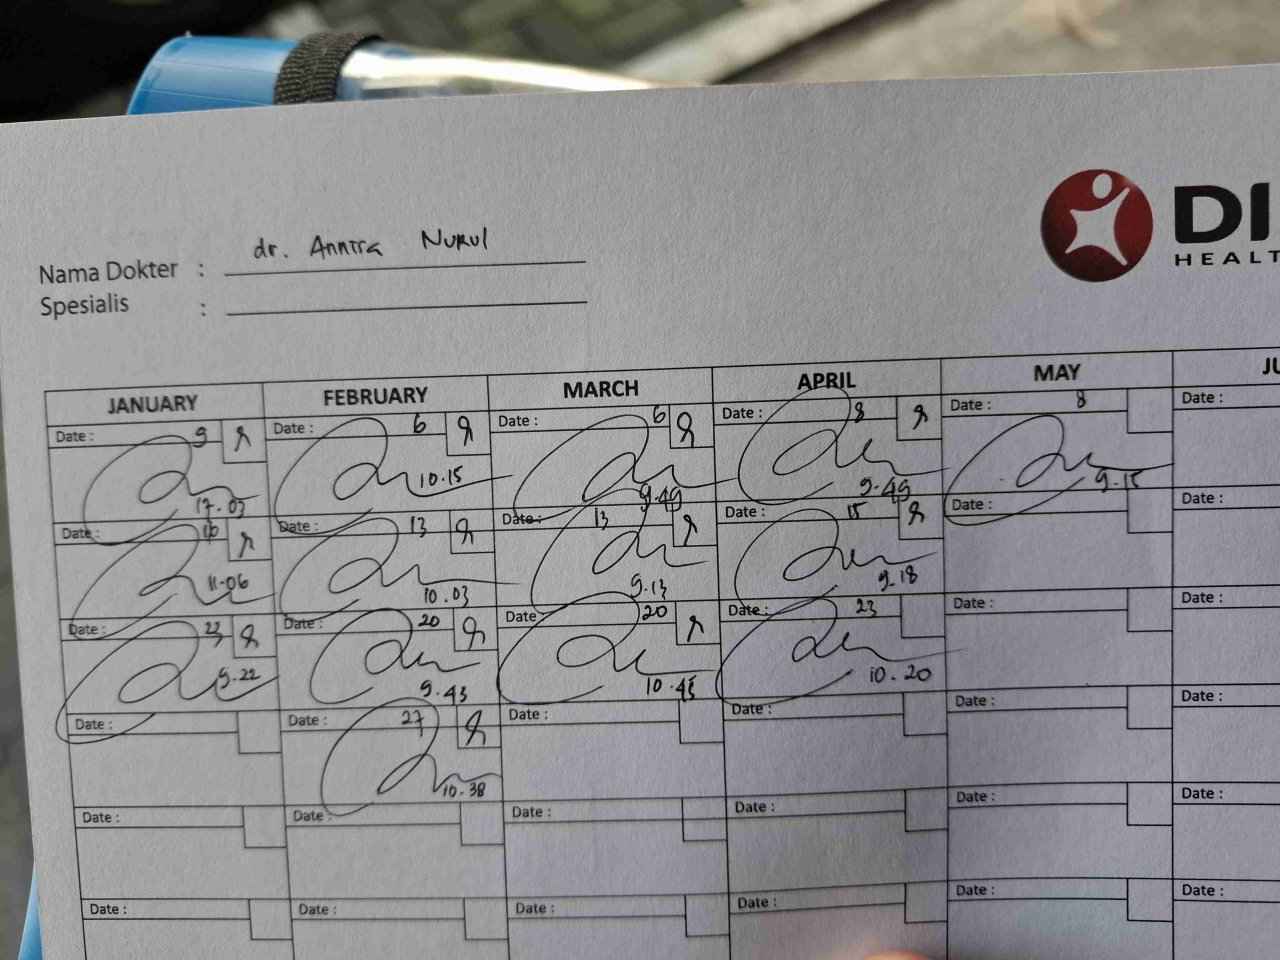 DI
HEALT
Nama Dokter : dr. Annisa Nurul
Spesialis :
JANUARY FEBRUARY MARCH APRIL MAY JU
Date : 9 Date : 6 Date : 6 Date : 8 Date : 8 Date :
17.03 10.15 9.49 9.49 9.15
Date : 16 Date : 13 Date : 13 Date : 15 Date : Date :
11.06 10.03 9.13 9.18
Date : 23 Date : 20 Date 20 Date : 23 Date : Date :
9.22 9.43 10.45 10.20
Date : Date : 27 Date : Date : Date : Date :
10.38
Date : Date : Date : Date : Date : Date :
Date : Date : Date : Date : Date : Date :